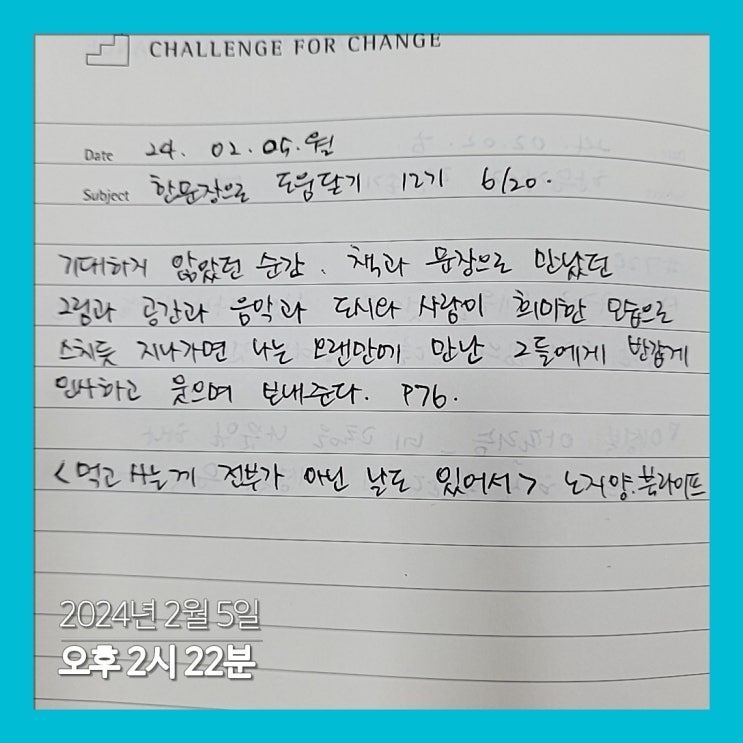 CHALLENGE FOR CHANGE
Date 24. 02. 05. 월
Subject 한문장으로 도움닫기 12기 6/20.
기대하게 않았던 순간. 책과 문장으로 만났던
그림과 공간과 음악과 도시와 사랑이 희미한 모습으로
스치듯 지나가면 나는 오랜만에 만난 그들에게 반갑게
인사하고 웃으며 보내준다. P76.
<먹고 사는게 전부가 아닌 날도 있어서> 노지양.북라이프
2024년 2월 5일
오후 2시 22분